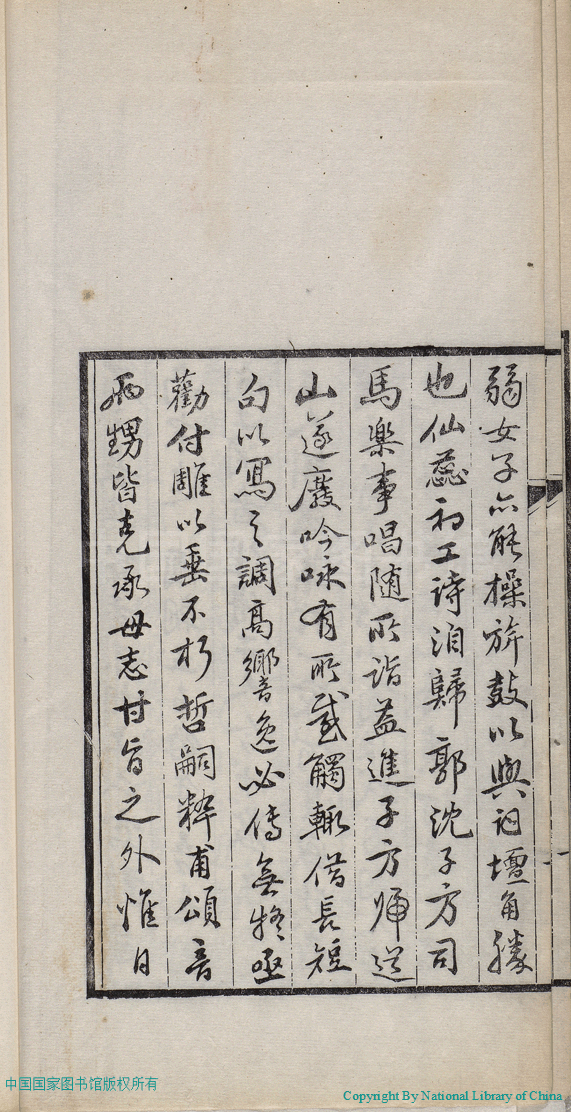 弱女子亦能操旂鼓以與詞壇角勝
也仙蕊初工詩洎歸郭沈子方司
馬樂事唱随所詣益進子方歸道
山遂廢吟咏有所感觸輙借長短
句以寫之調高響逸必傳無疑亟
勸付雕以垂不朽哲嗣粹甫頌音
兩甥皆克承母志甘旨之外惟日
中国国家图书馆版权所有
Copyright By National Library of China